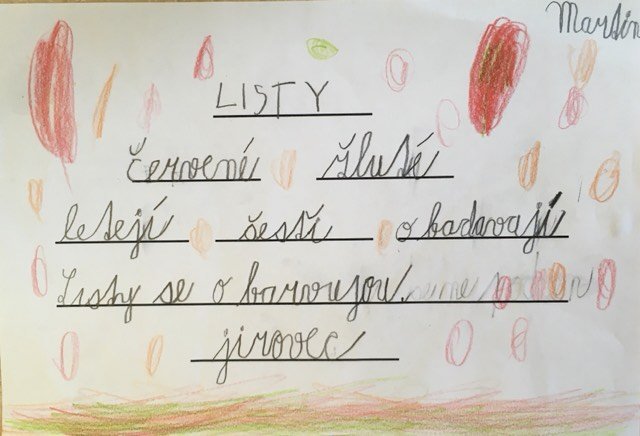 Martin
LISTY
červené žluté
letejí šestí o badavají
Listy se o barvujou.
jírovec